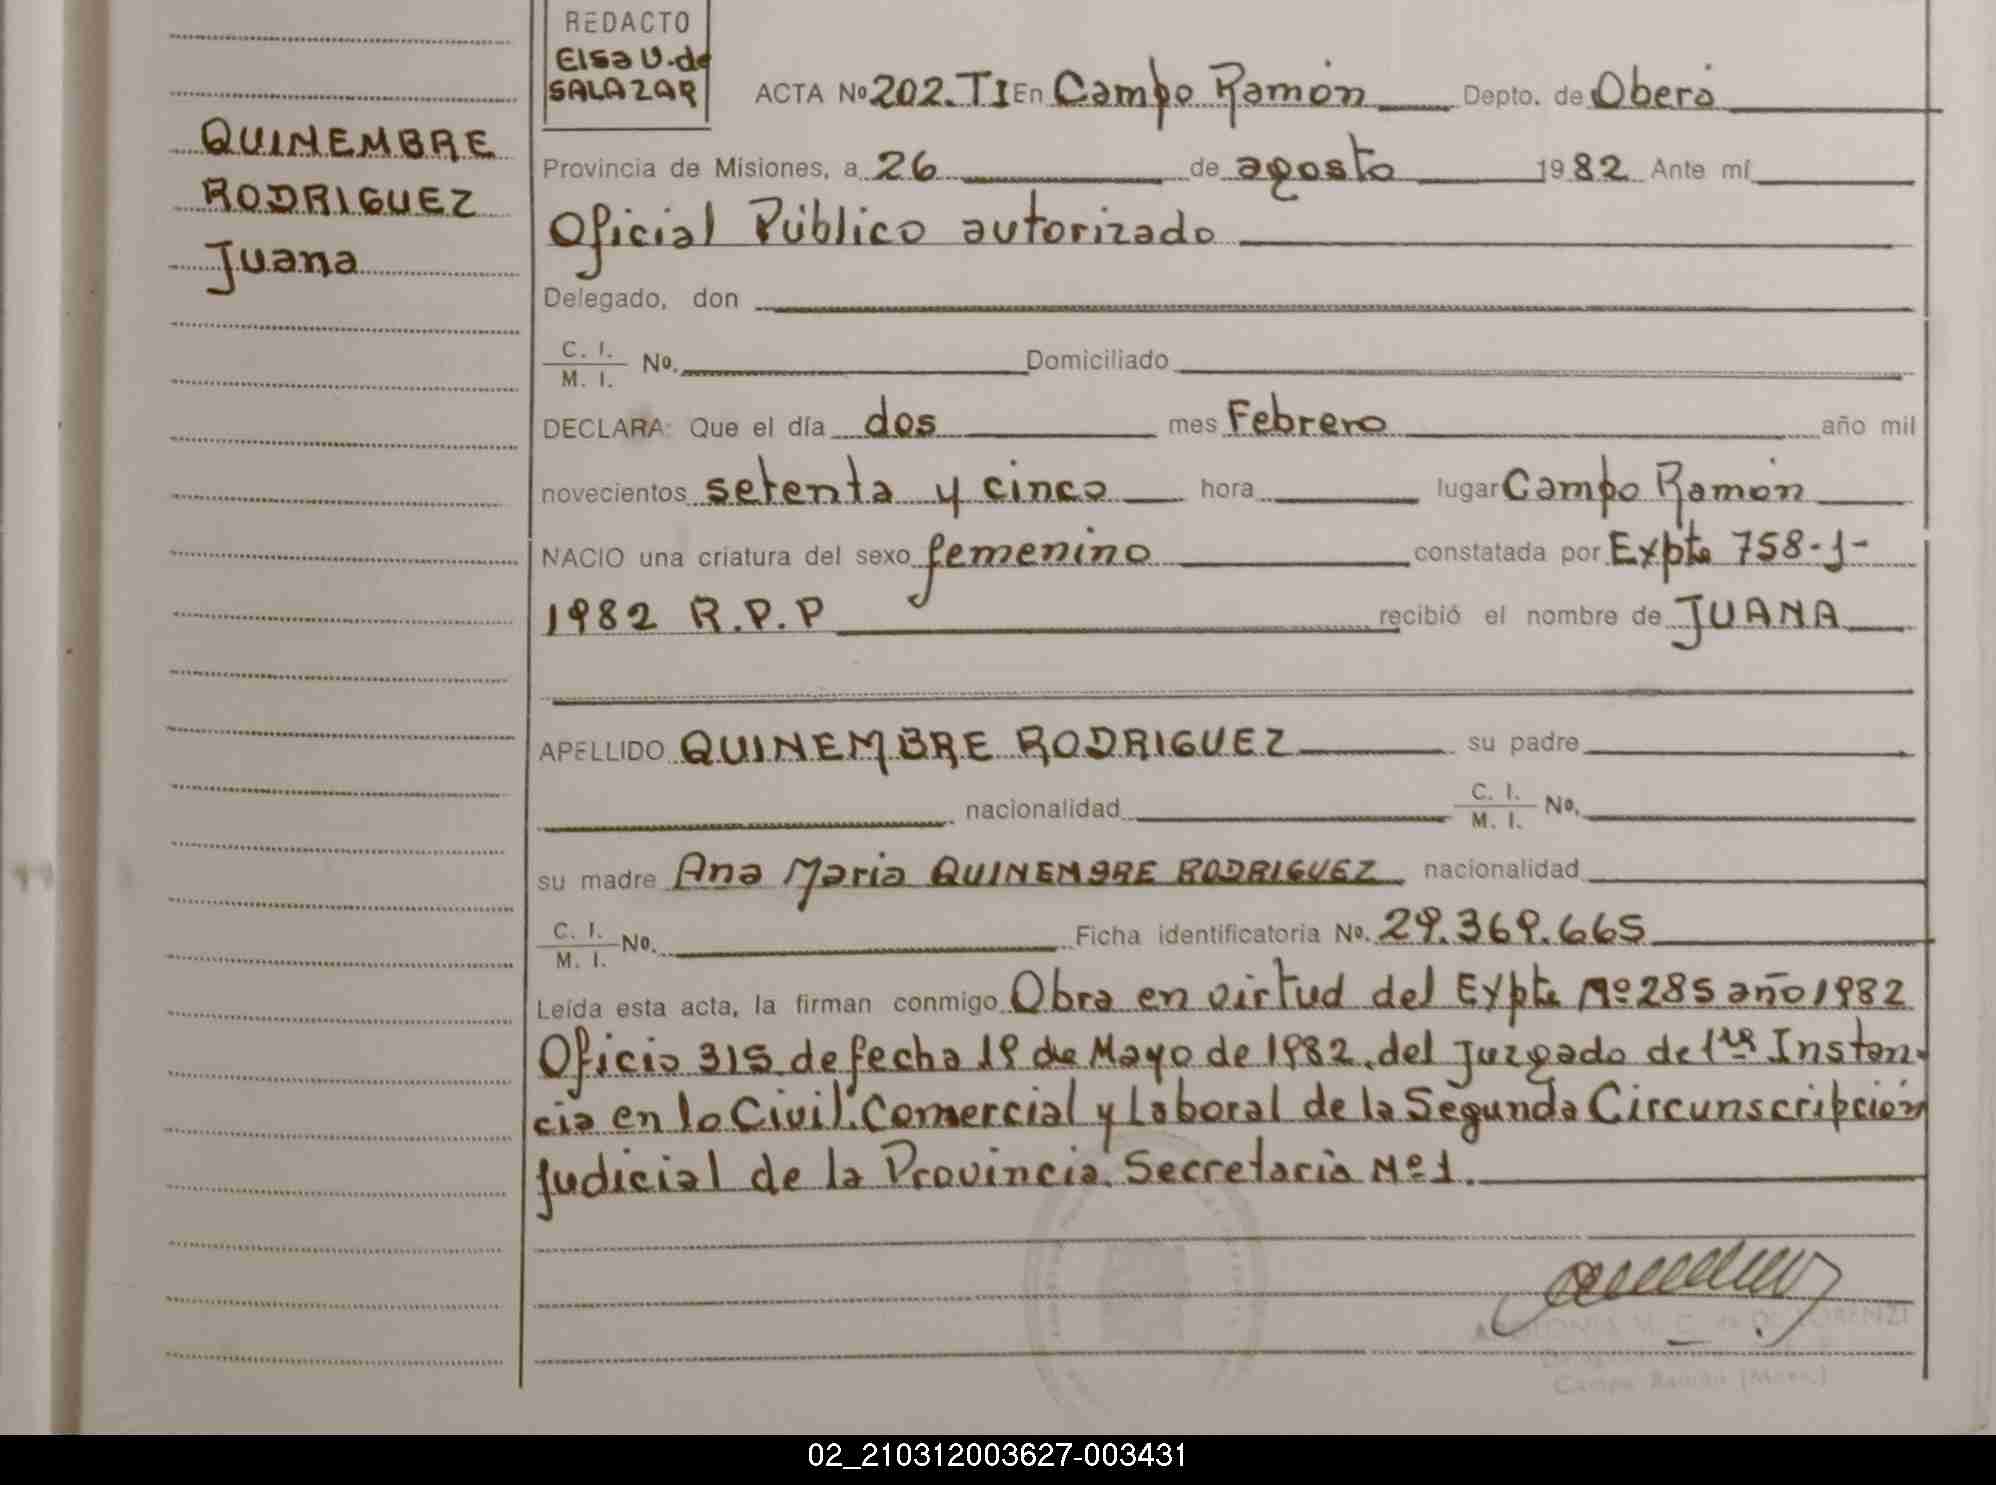 REDACTO
Elsa V. de
SALAZAR
QUINEMBRE
RODRIGUEZ
Juana
ACTA Nº 202. TI En Campo Ramón Depto. de Oberá
Provincia de Misiones, a 26 de agosto 1982 Ante mí
Oficial Público autorizado
Delegado, don
C. I.
M. I. Nº. Domiciliado
DECLARA: Que el día dos mes Febrero año mil
novecientos setenta y cinco hora lugar Campo Ramón
NACIO una criatura del sexo femenino constatada por Expte 758-J-
1982 R.P.P recibió el nombre de JUANA
APELLIDO QUINEMBRE RODRIGUEZ su padre
nacionalidad C. I.
M. I. Nº.
su madre Ana Maria QUINEMBRE RODRIGUEZ nacionalidad
C. I.
M. I. Nº. Ficha identificatoria Nº. 29.369.665
Leída esta acta, la firman conmigo Obra en virtud del Expte Nº 285 año 1982
Oficio 315 de fecha 19 de Mayo de 1982. del Juzgado de 1ra Instan-
cia en lo Civil. Comercial y Laboral de la Segunda Circunscripción
judicial de la Provincia. Secretaría Nº 1.
Campo Ramón
02_210312003627-003431